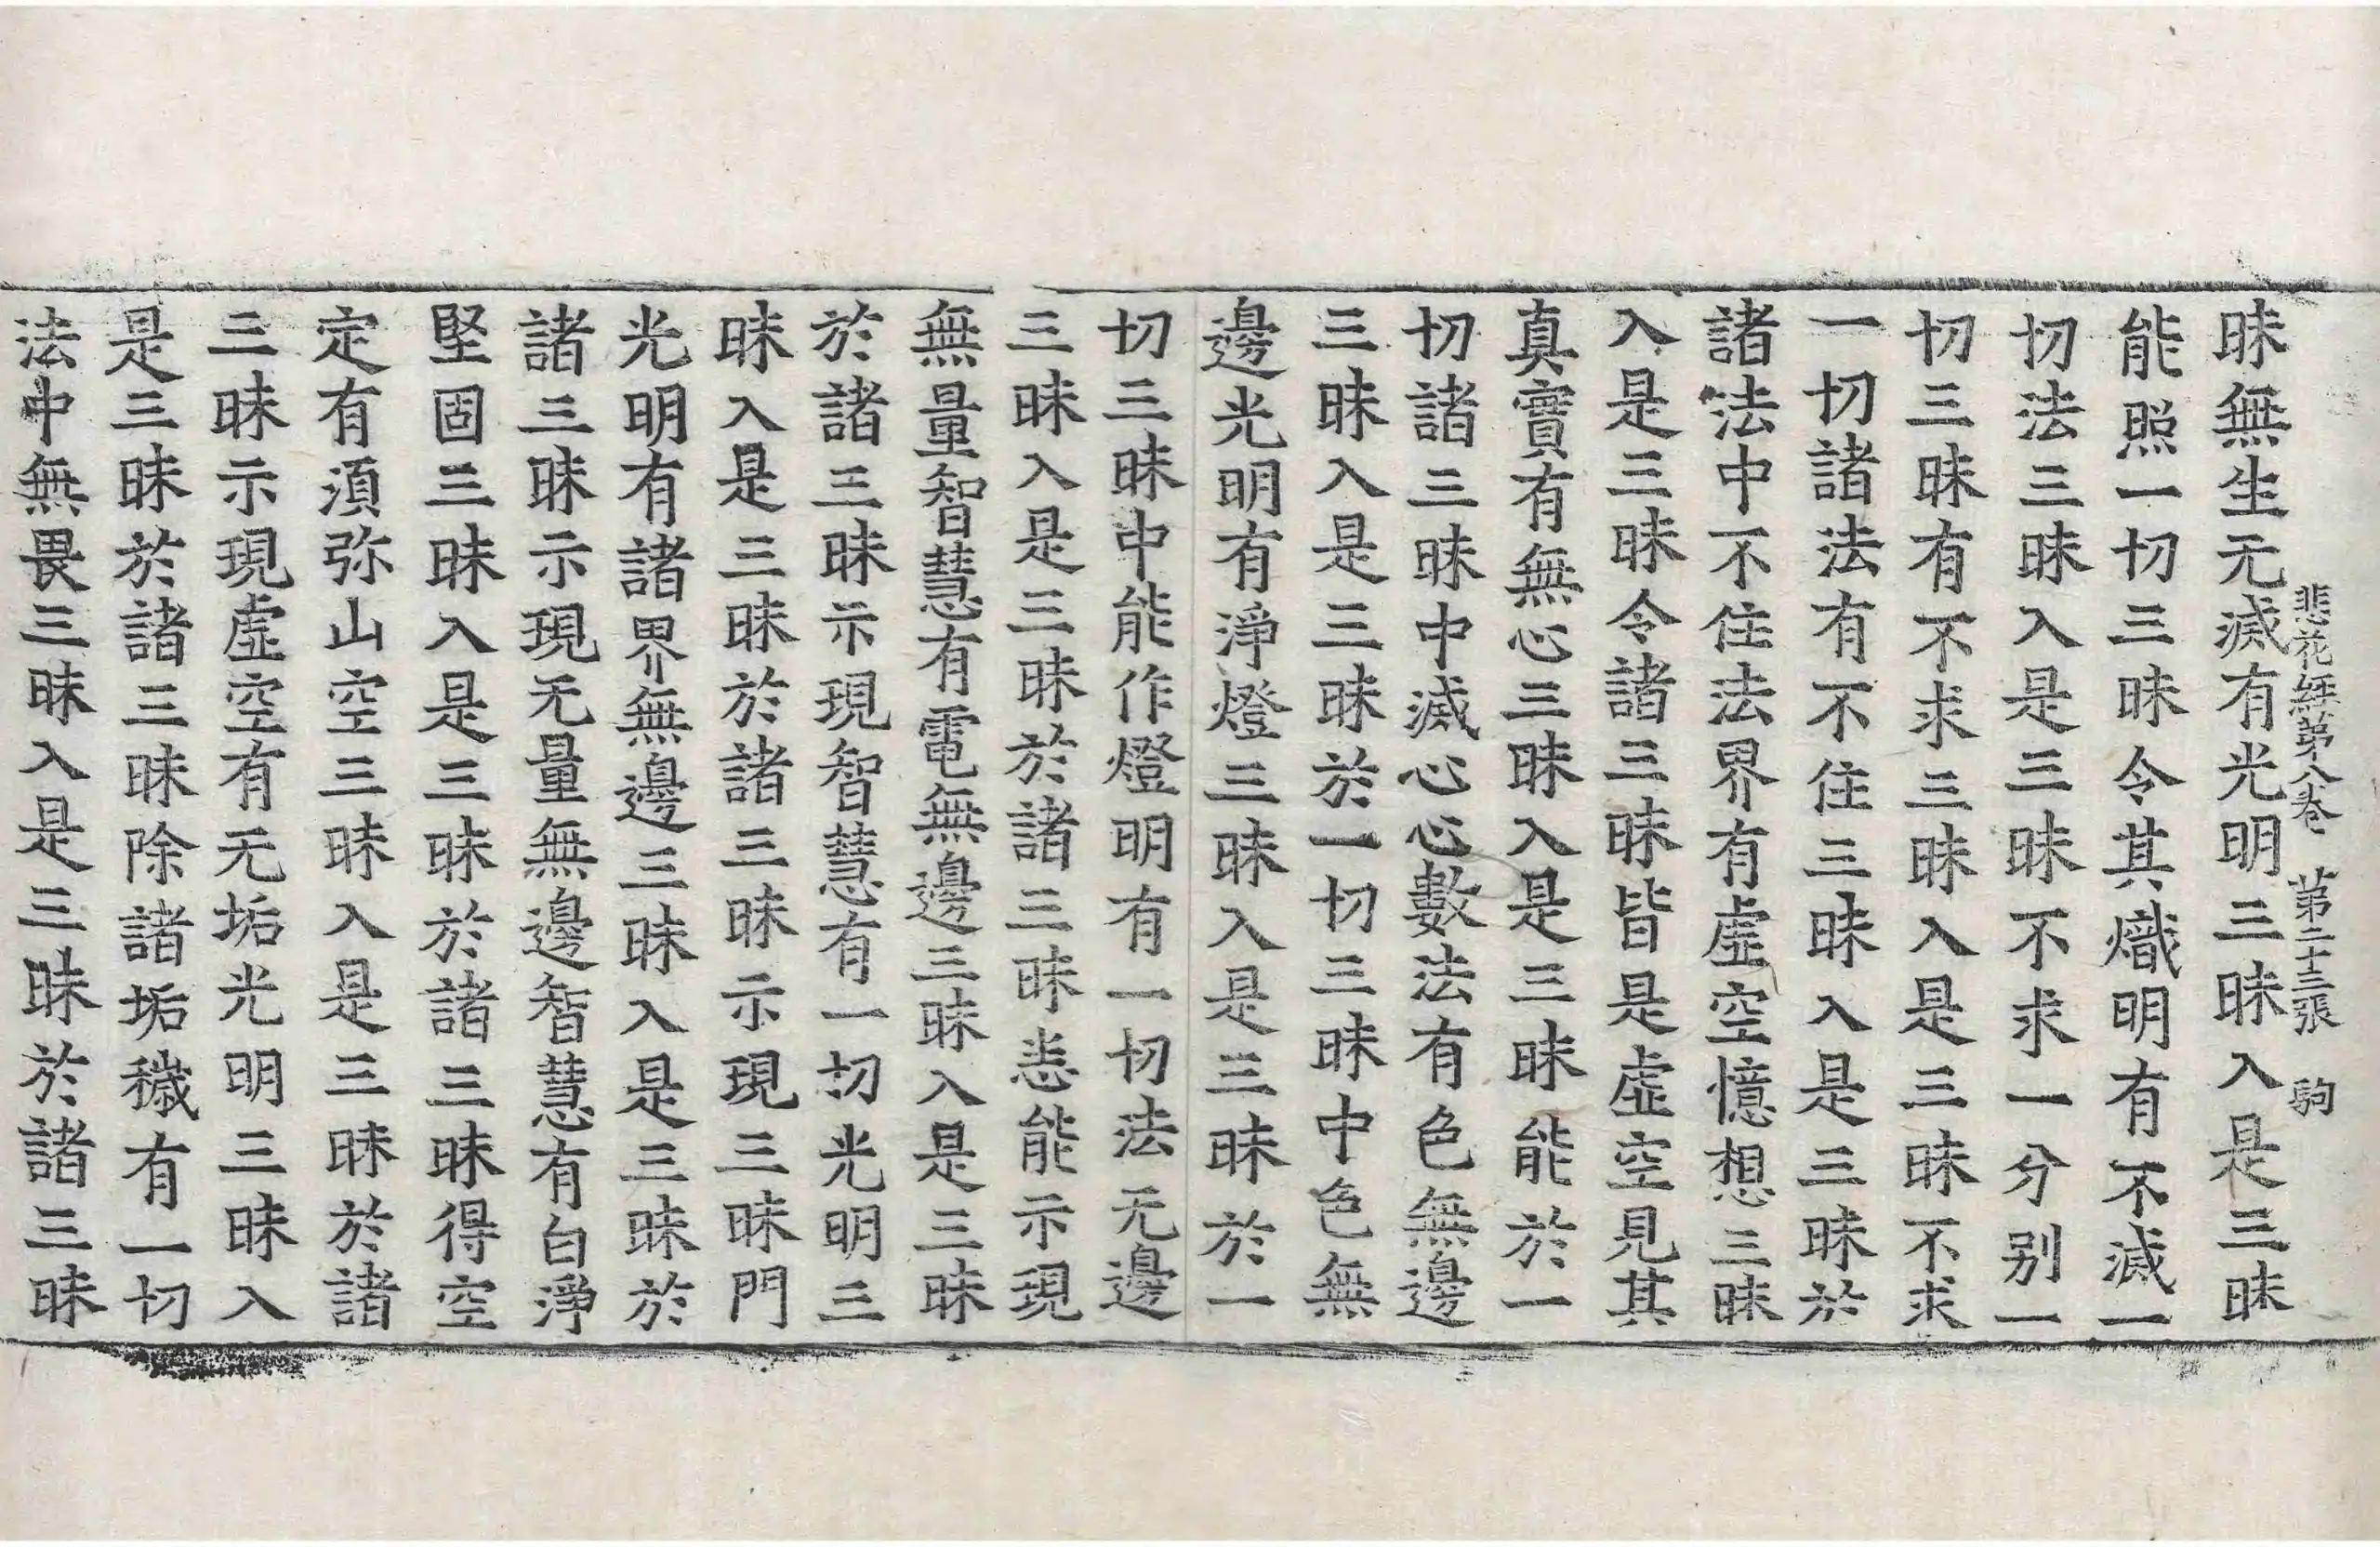 悲花經第八卷 第二十三張 駒
昧無生无滅有光明三昧入是三昧
能照一切三昧令其熾明有不滅一
切法三昧入是三昧不求一分别一
切三昧有不求三昧入是三昧不求
一切諸法有不住三昧入是三昧於
諸法中不住法界有虛空憶想三昧
入是三昧令諸三昧皆是虛空見其
真實有無心三昧入是三昧能於一
切諸三昧中滅心心數法有色無邊
三昧入是三昧於一切三昧中色無
邊光明有淨燈三昧入是三昧於一
切三昧中能作燈明有一切法无邊
三昧入是三昧於諸三昧悉能示現
無量智慧有電無邊三昧入是三昧
於諸三昧示現智慧有一切光明三
昧入是三昧於諸三昧示現三昧門
光明有諸界無邊三昧入是三昧於
諸三昧示現无量無邊智慧有白淨
堅固三昧入是三昧於諸三昧得空
定有湏弥山空三昧入是三昧於諸
三昧示現虛空有无垢光明三昧入
是三昧於諸三昧除諸垢穢有一切
法中無畏三昧入是三昧於諸三昧